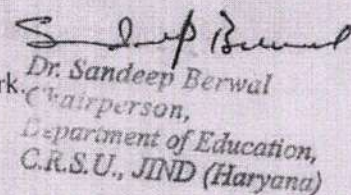 Sandeep Berwal
rk.
Dr. Sandeep Berwal
Chairperson,
Department of Education,
C.R.S.U., JIND (Haryana)